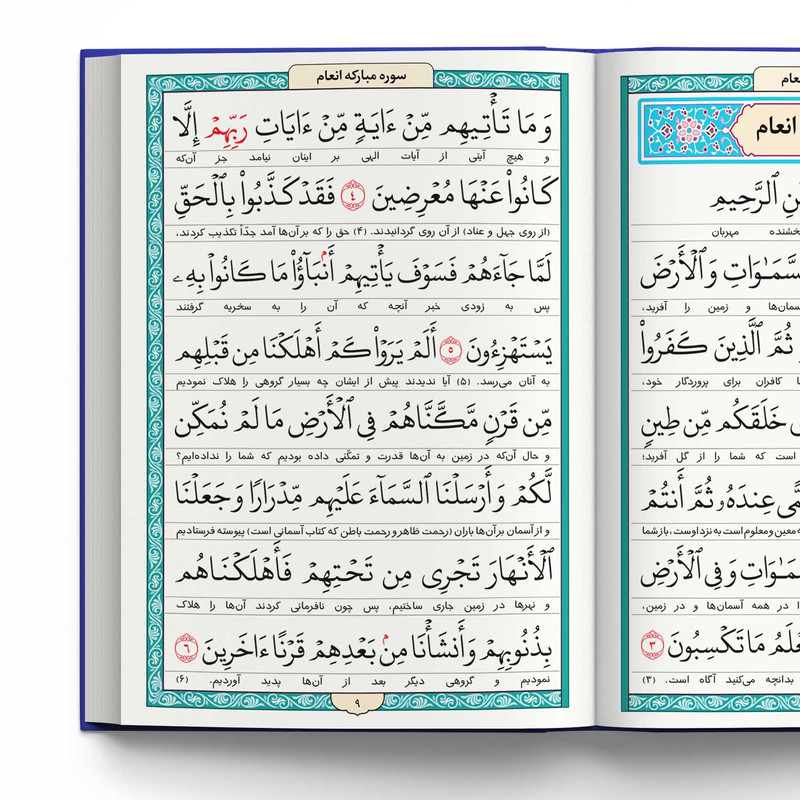 نعام
انعام
نِ ٱلرَّحِيمِ
خشنده مهربان
سَّمَـٰوَاتِ وَٱلْأَرْضَ
سمان‌ها و زمین را آفرید،
ثُمَّ ٱلَّذِينَ كَفَرُوا۟
ا کافران برای پروردگار خود،
ى خَلَقَكُم مِّن طِينٍ
است که شما را از گل آفرید؛
مًّى عِندَهُۥ ثُمَّ أَنتُمْ
ه معین و معلوم است به نزد اوست، باز شما
مَـٰوَاتِ وَفِى ٱلْأَرْضِ
ا در همه آسمان‌ها و در زمین،
عْلَمُ مَا تَكْسِبُونَ ٣
بدانچه می‌کنید آگاه است. (۳)
سوره مبارکه انعام
وَمَا تَأْتِيهِم مِّنْ ءَايَةٍ مِّنْ ءَايَاتِ رَبِّهِمْ إِلَّا
و هیچ آیتی از آیات الهی بر اینان نیامد جز آن‌که
كَانُوا۟ عَنْهَا مُعْرِضِينَ ٤ فَقَدْ كَذَّبُوا۟ بِٱلْحَقِّ
(از روی جهل و عناد) از آن روی گردانیدند. (۴) حق را که بر آن‌ها آمد جدّاً تکذیب کردند،
لَمَّا جَآءَهُمْ فَسَوْفَ يَأْتِيهِمْ أَنۢبَـٰٓؤُا۟ مَا كَانُوا۟ بِهِۦ
پس به زودی خبر آنچه که آن را به سخریه گرفتند
يَسْتَهْزِءُونَ ٥ أَلَمْ يَرَوْا۟ كَمْ أَهْلَكْنَا مِن قَبْلِهِم
به آنان می‌رسد. (۵) آیا ندیدند پیش از ایشان چه بسیار گروهی را هلاک نمودیم
مِّن قَرْنٍ مَّكَّنَّاهُمْ فِى ٱلْأَرْضِ مَا لَمْ نُمَكِّن
و حال آن‌که در زمین به آن‌ها قدرت و تمکّنی داده بودیم که شما را نداده‌ایم؟
لَّكُمْ وَأَرْسَلْنَا ٱلسَّمَآءَ عَلَيْهِم مِّدْرَارًا وَجَعَلْنَا
و از آسمان بر آن‌ها باران (رحمت ظاهر و رحمت باطن که کتاب آسمانی است) پیوسته فرستادیم
ٱلْأَنْهَارَ تَجْرِى مِن تَحْتِهِمْ فَأَهْلَكْنَاهُم
و نهرها در زمین جاری ساختیم، پس چون نافرمانی کردند آن‌ها را هلاک
بِذُنُوبِهِمْ وَأَنشَأْنَا مِنۢ بَعْدِهِمْ قَرْنًا ءَاخَرِينَ ٦
نمودیم و گروهی دیگر بعد از آن‌ها پدید آوردیم. (۶)
۹